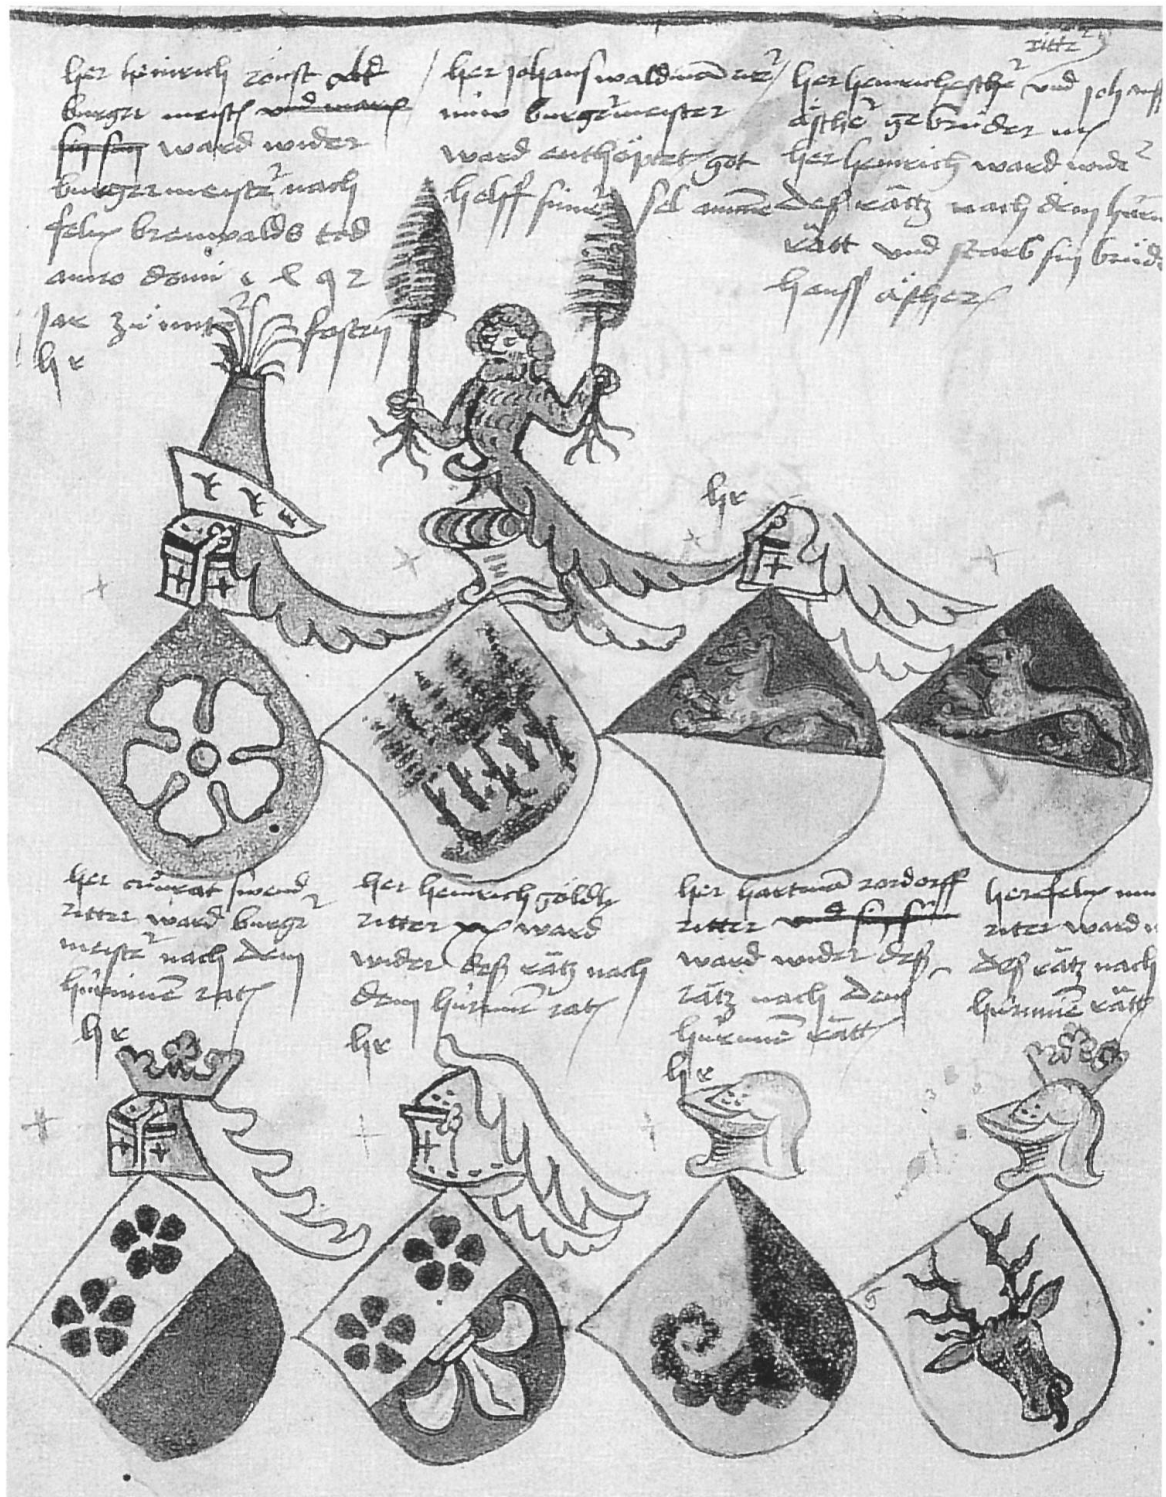 her heinrich röist alt
burger meister und waren
sin sun ward wider
burgermeister nach
felix brenwalds tod
anno domi 1 4 9 2
jar zů mitter fasten
hr
her johans waldman
nüw burgermeister
ward enthöptet got
helff siner sel amme
ritter
her heinrich escher und johanß
äscher gebrüder
her heinrich ward wider
deß rätz nach dem hürn
rätt und starb sin brüd
hanss äscher
hr
her cůnrat swend
ritter ward burger
meister nach dem
hürninen rat
hr
her heinrich göldly
ritter ward
wider deß rätz nach
dem hürninen rat
hr
her hartman rordorff
ritter und sin sun
ward wider deß
rätz nach dem
hürninen rätt
hr
her felix
riter ward
deß rätz nach
hürninen rätt